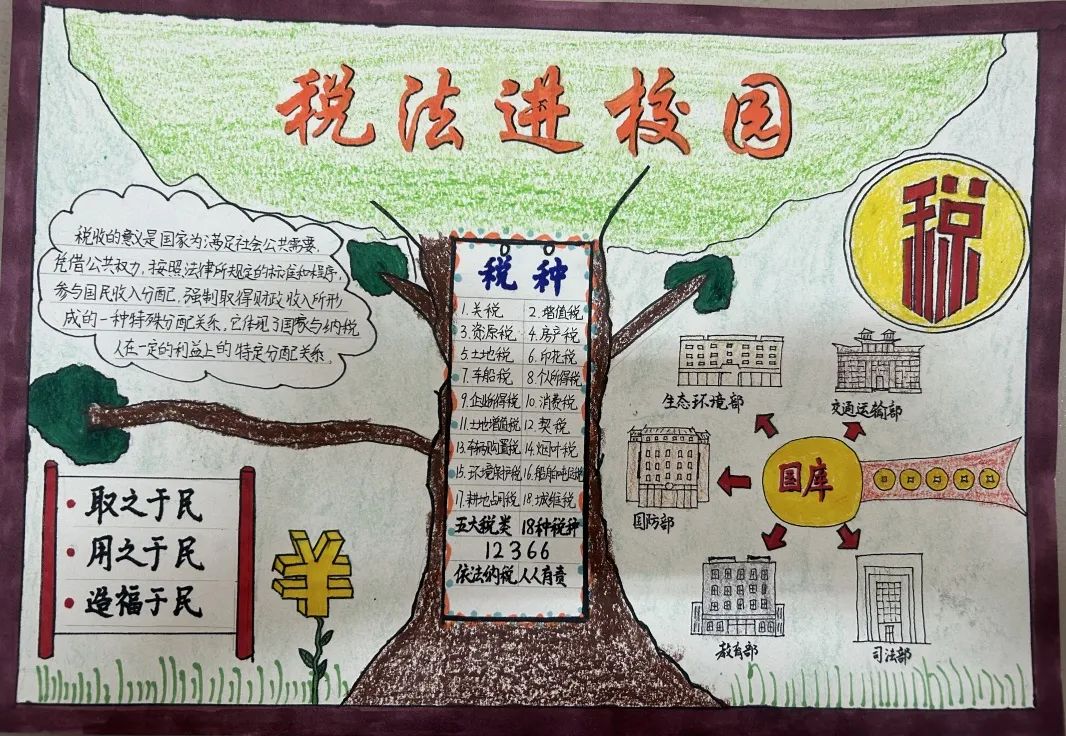 税法进校园
税
税收的意义是国家为满足社会公共需要,
凭借公共权力,按照法律所规定的标准和程序,
参与国民收入分配,强制取得财政收入所形
成的一种特殊分配关系,它体现了国家与纳税
人在一定的利益上的特定分配关系
取之于民
用之于民
造福于民
税种
1.关税 2.增值税
3.资原税 4.房产税
5.土地税 6.印花税
7.车船税 8.个人所得税
9.企业所得税 10.消费税
11.土地增值税 12.契税
13.车辆购置税 14.烟叶税
15.环境保护税 16.船舶吨位税
17.耕地占用税 18.城维税
五大税类 18种税种
12366
依法纳税 人人有责
生态环境部
交通运输部
国防部
国库
教育部
司法部